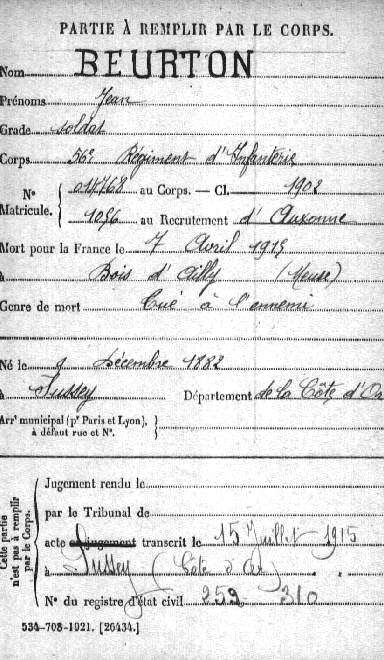 PARTIE À REMPLIR PAR LE CORPS.
Nom BEURTON
Prénoms Jean
Grade soldat
Corps 56e Régiment d'Infanterie
N° Matricule. { 014768 au Corps. — Cl. 1902
1096 au Recrutement d'Auxonne
Mort pour la France le 7 Avril 1915
à Bois d'Ailly (Meuse)
Genre de mort Tué à l'ennemi
Né le Décembre 1882
à Sussey Département de la Côte d'Or
Arr' municipal (p' Paris et Lyon), à défaut rue et N°.
Cette partie n'est pas à remplir par le Corps.
Jugement rendu le
par le Tribunal de
acte ou jugement transcrit le 15 Juillet 1915
à Sussey (Côte d'Or)
N° du registre d'état civil 259 310
534-708-1921. [26434.]